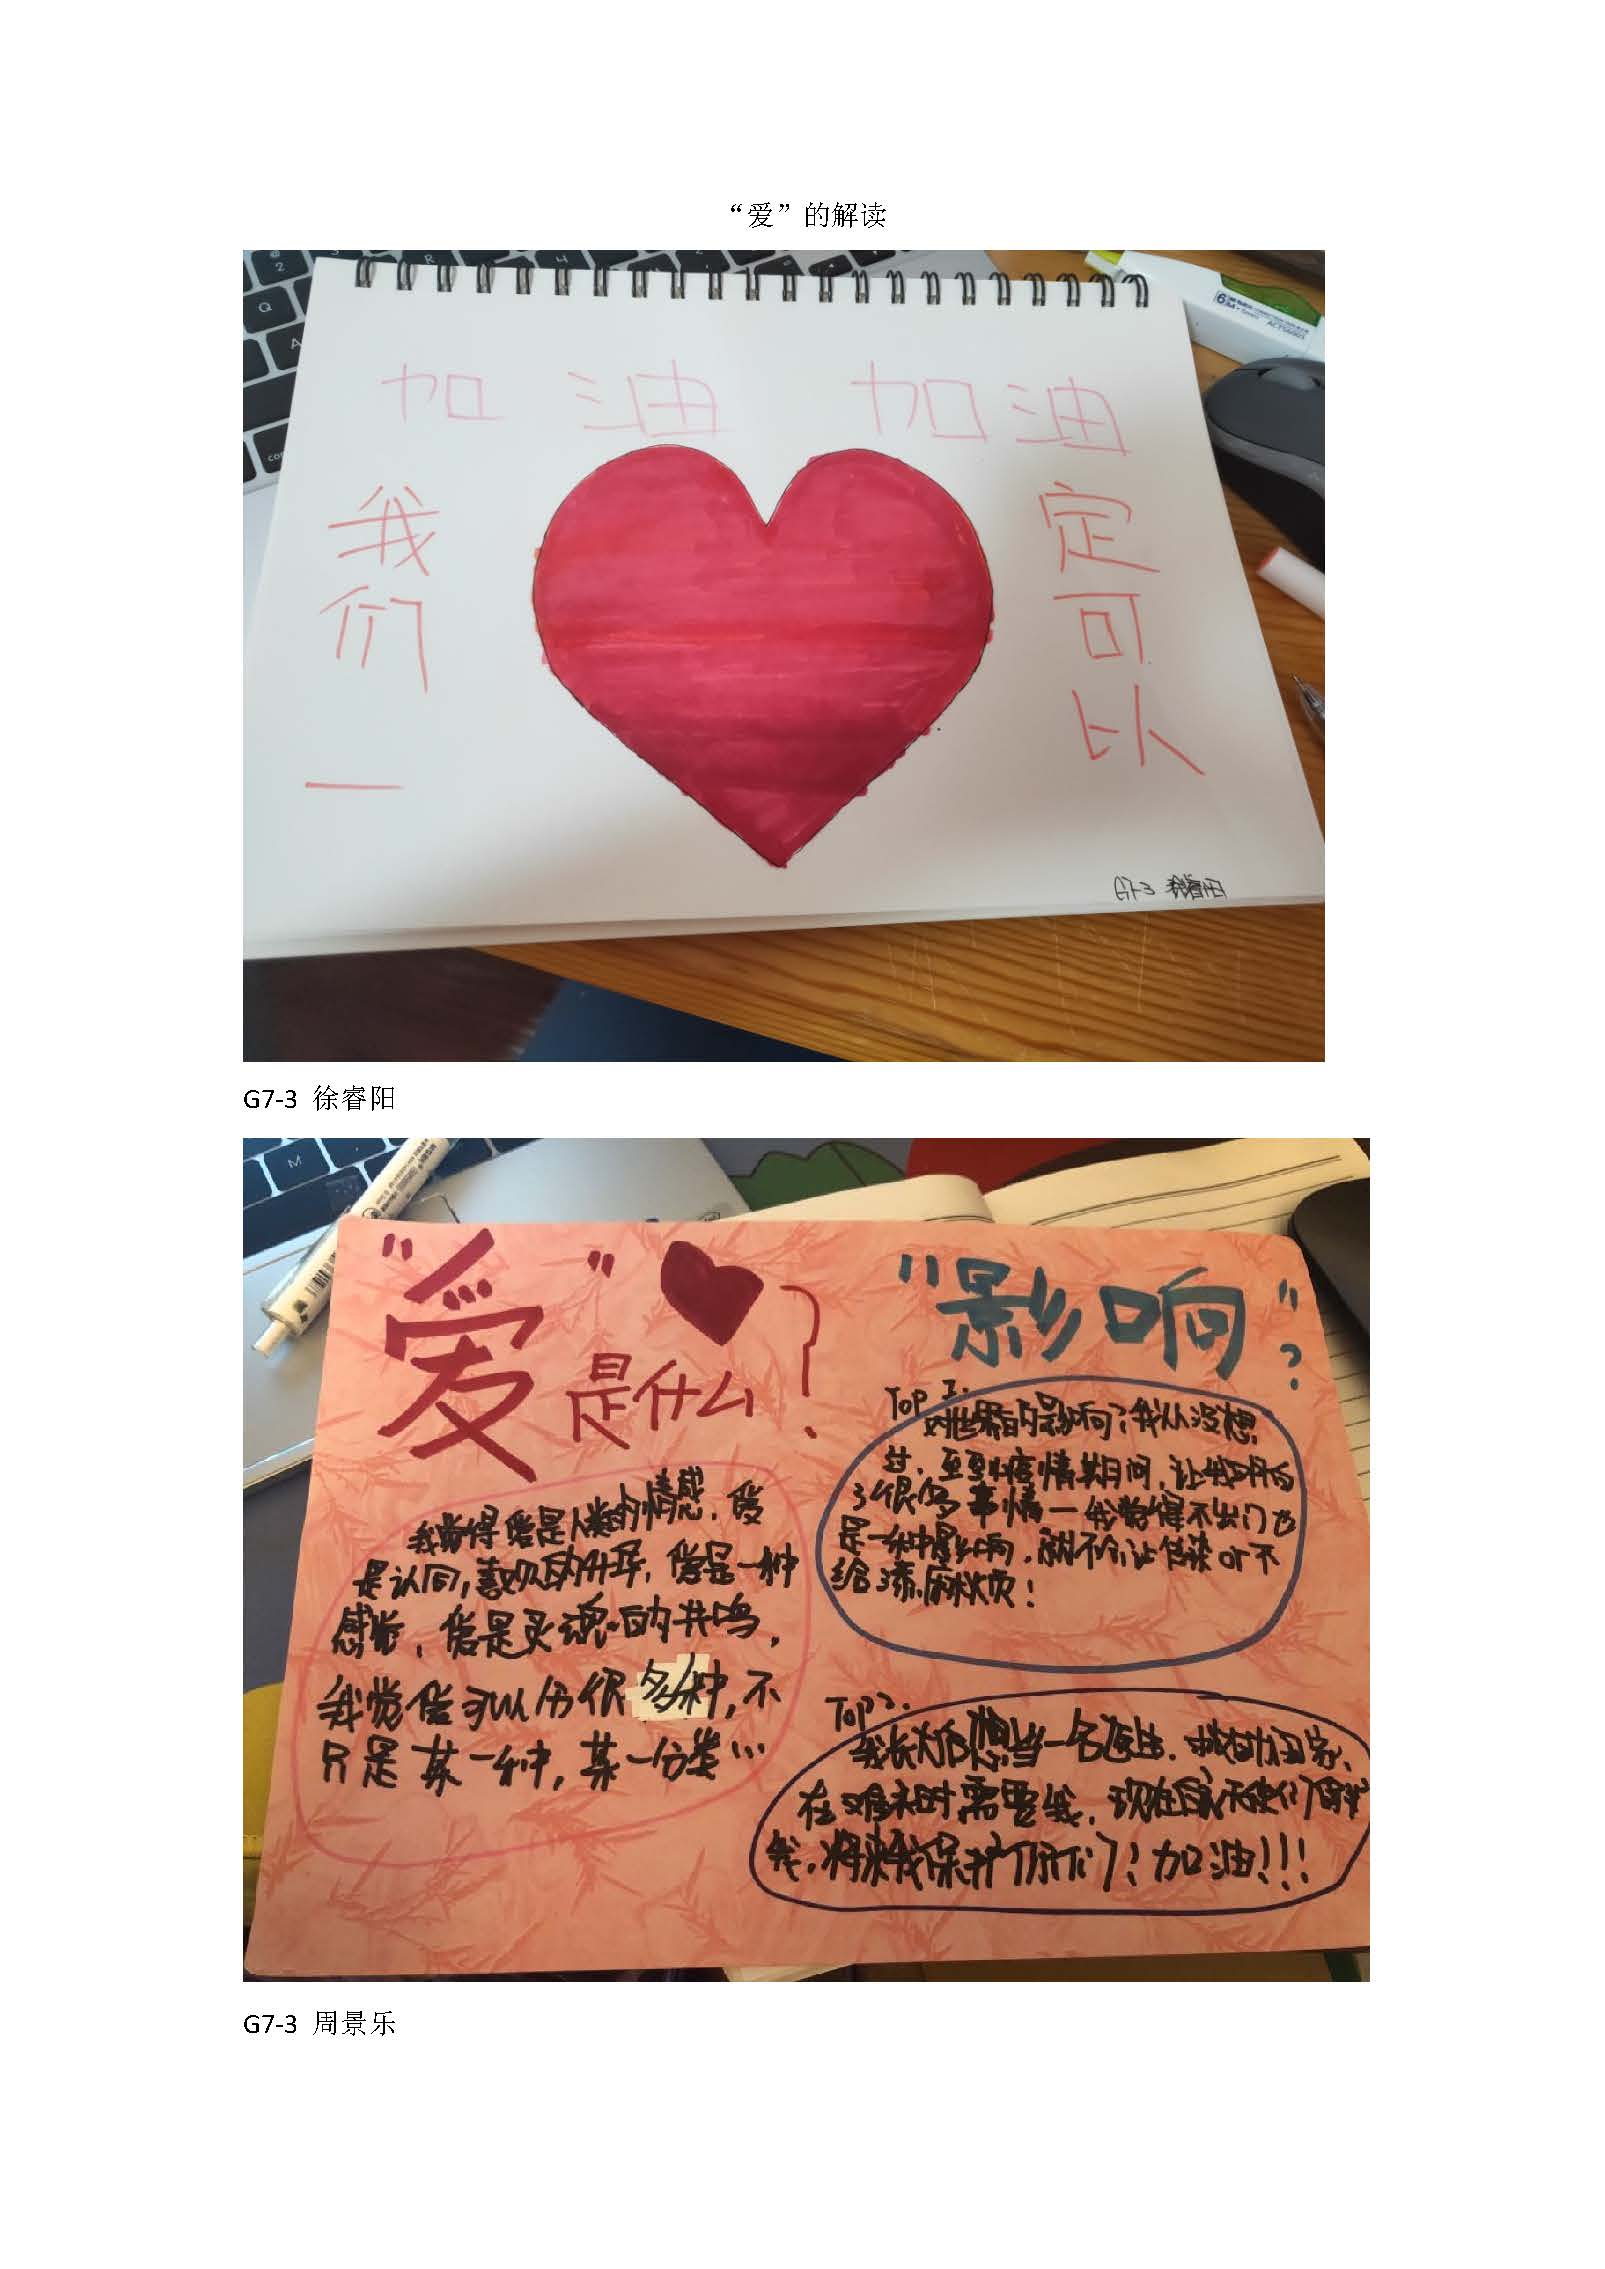 “爱”的解读
加油 加油
我们一
定可以
G7-3 徐睿阳
G7-3 徐睿阳
“爱”是什么?
我觉得爱是人类的情感,爱
是认同,喜欢的升华,爱是一种
感觉,爱是灵魂的共鸣,
我觉爱可以分很多种,不
只是某一种,某一分类…
“影响”?
Top 1:
对世界的影响?我从没想
过,至到疫情期间,让我明白
了很多事情一我觉得不出门也
是一种影响,就不会让传染or不
给添麻烦!
Top 2:
我长大后想当一名医生,
在难来时需要我,现在
我,将来我保护你们!加油!!!
G7-3 周景乐